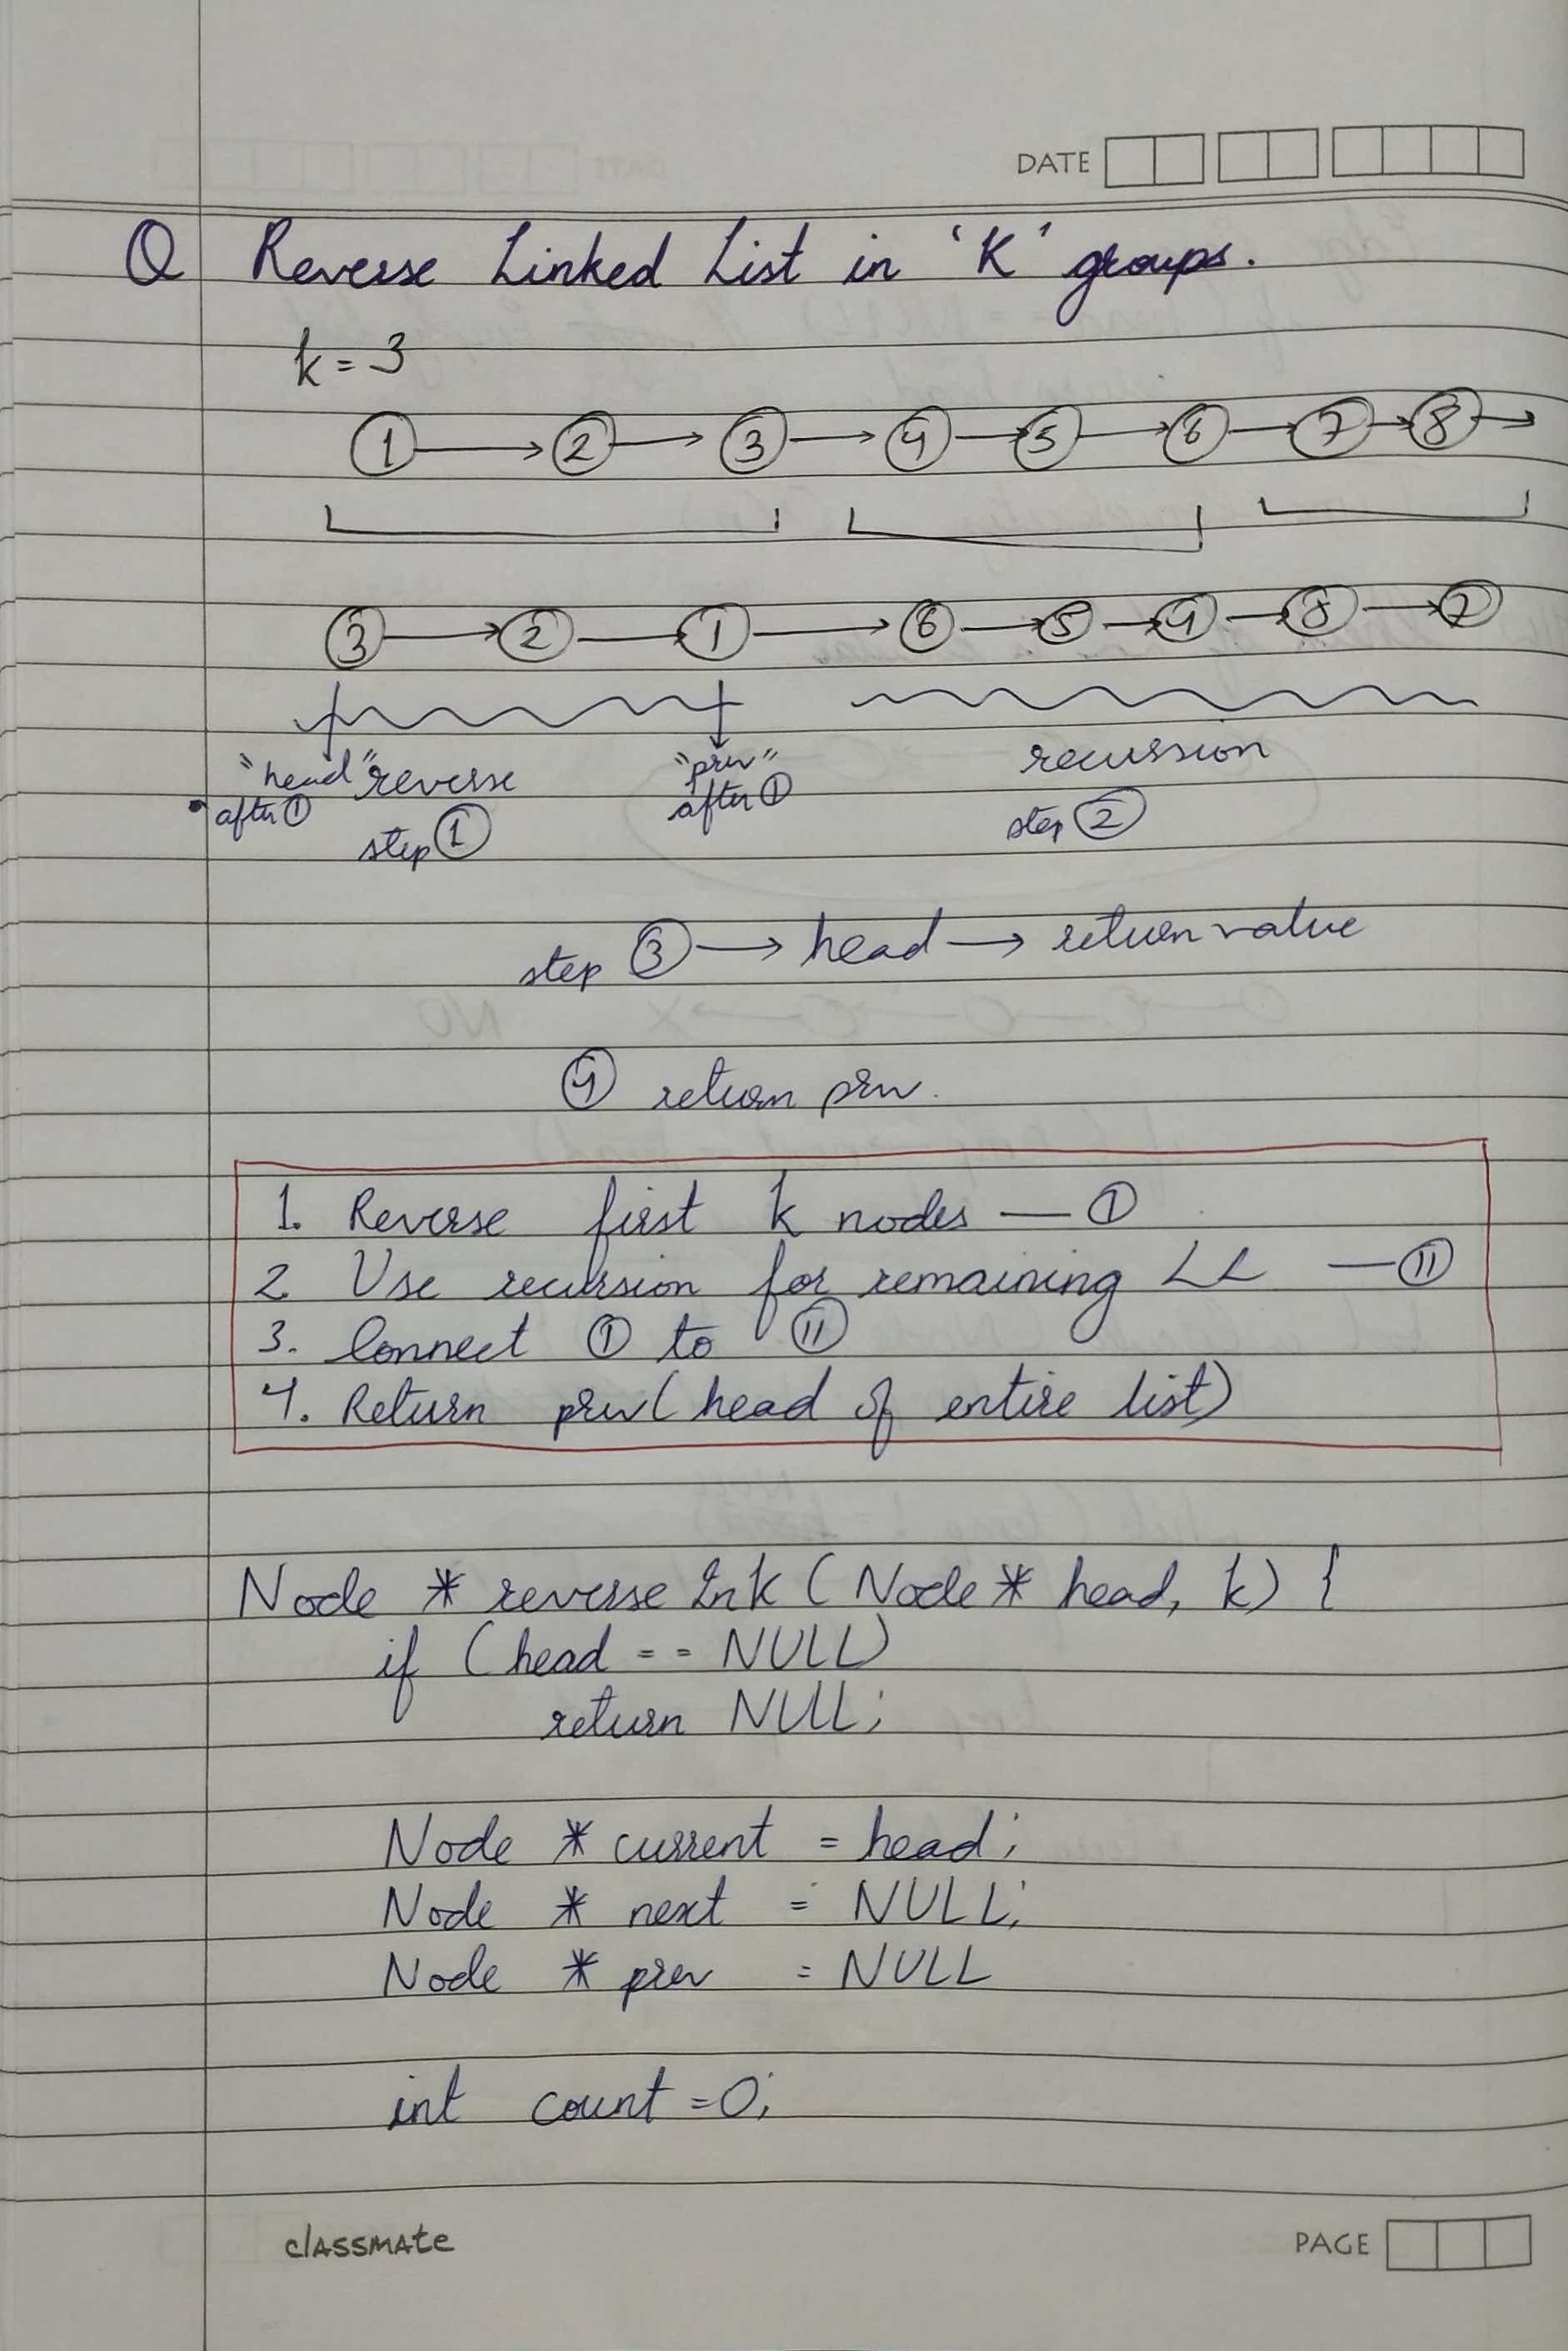 DATE
Q Reverse Linked List in 'K' groups.
k = 3
1 → 2 → 3 → 4 → 5 → 6 → 7 → 8 →
3 → 2 → 1 → 6 → 5 → 4 → 8 → 7
"head" reverse "prev" recussion
after ① after ① step ②
step ①
step ③ → head → return value
④ return prev.
1. Reverse first k nodes — ①
2 Use recursion for remaining LL — ⑪
3. Connect ① to ⑪
4. Return prev (head of entire list)
Node * reverse In k (Node * head, k) {
if (head == NULL)
return NULL;
Node * current = head;
Node * next = NULL;
Node * prev = NULL
int count = 0;
classmate PAGE